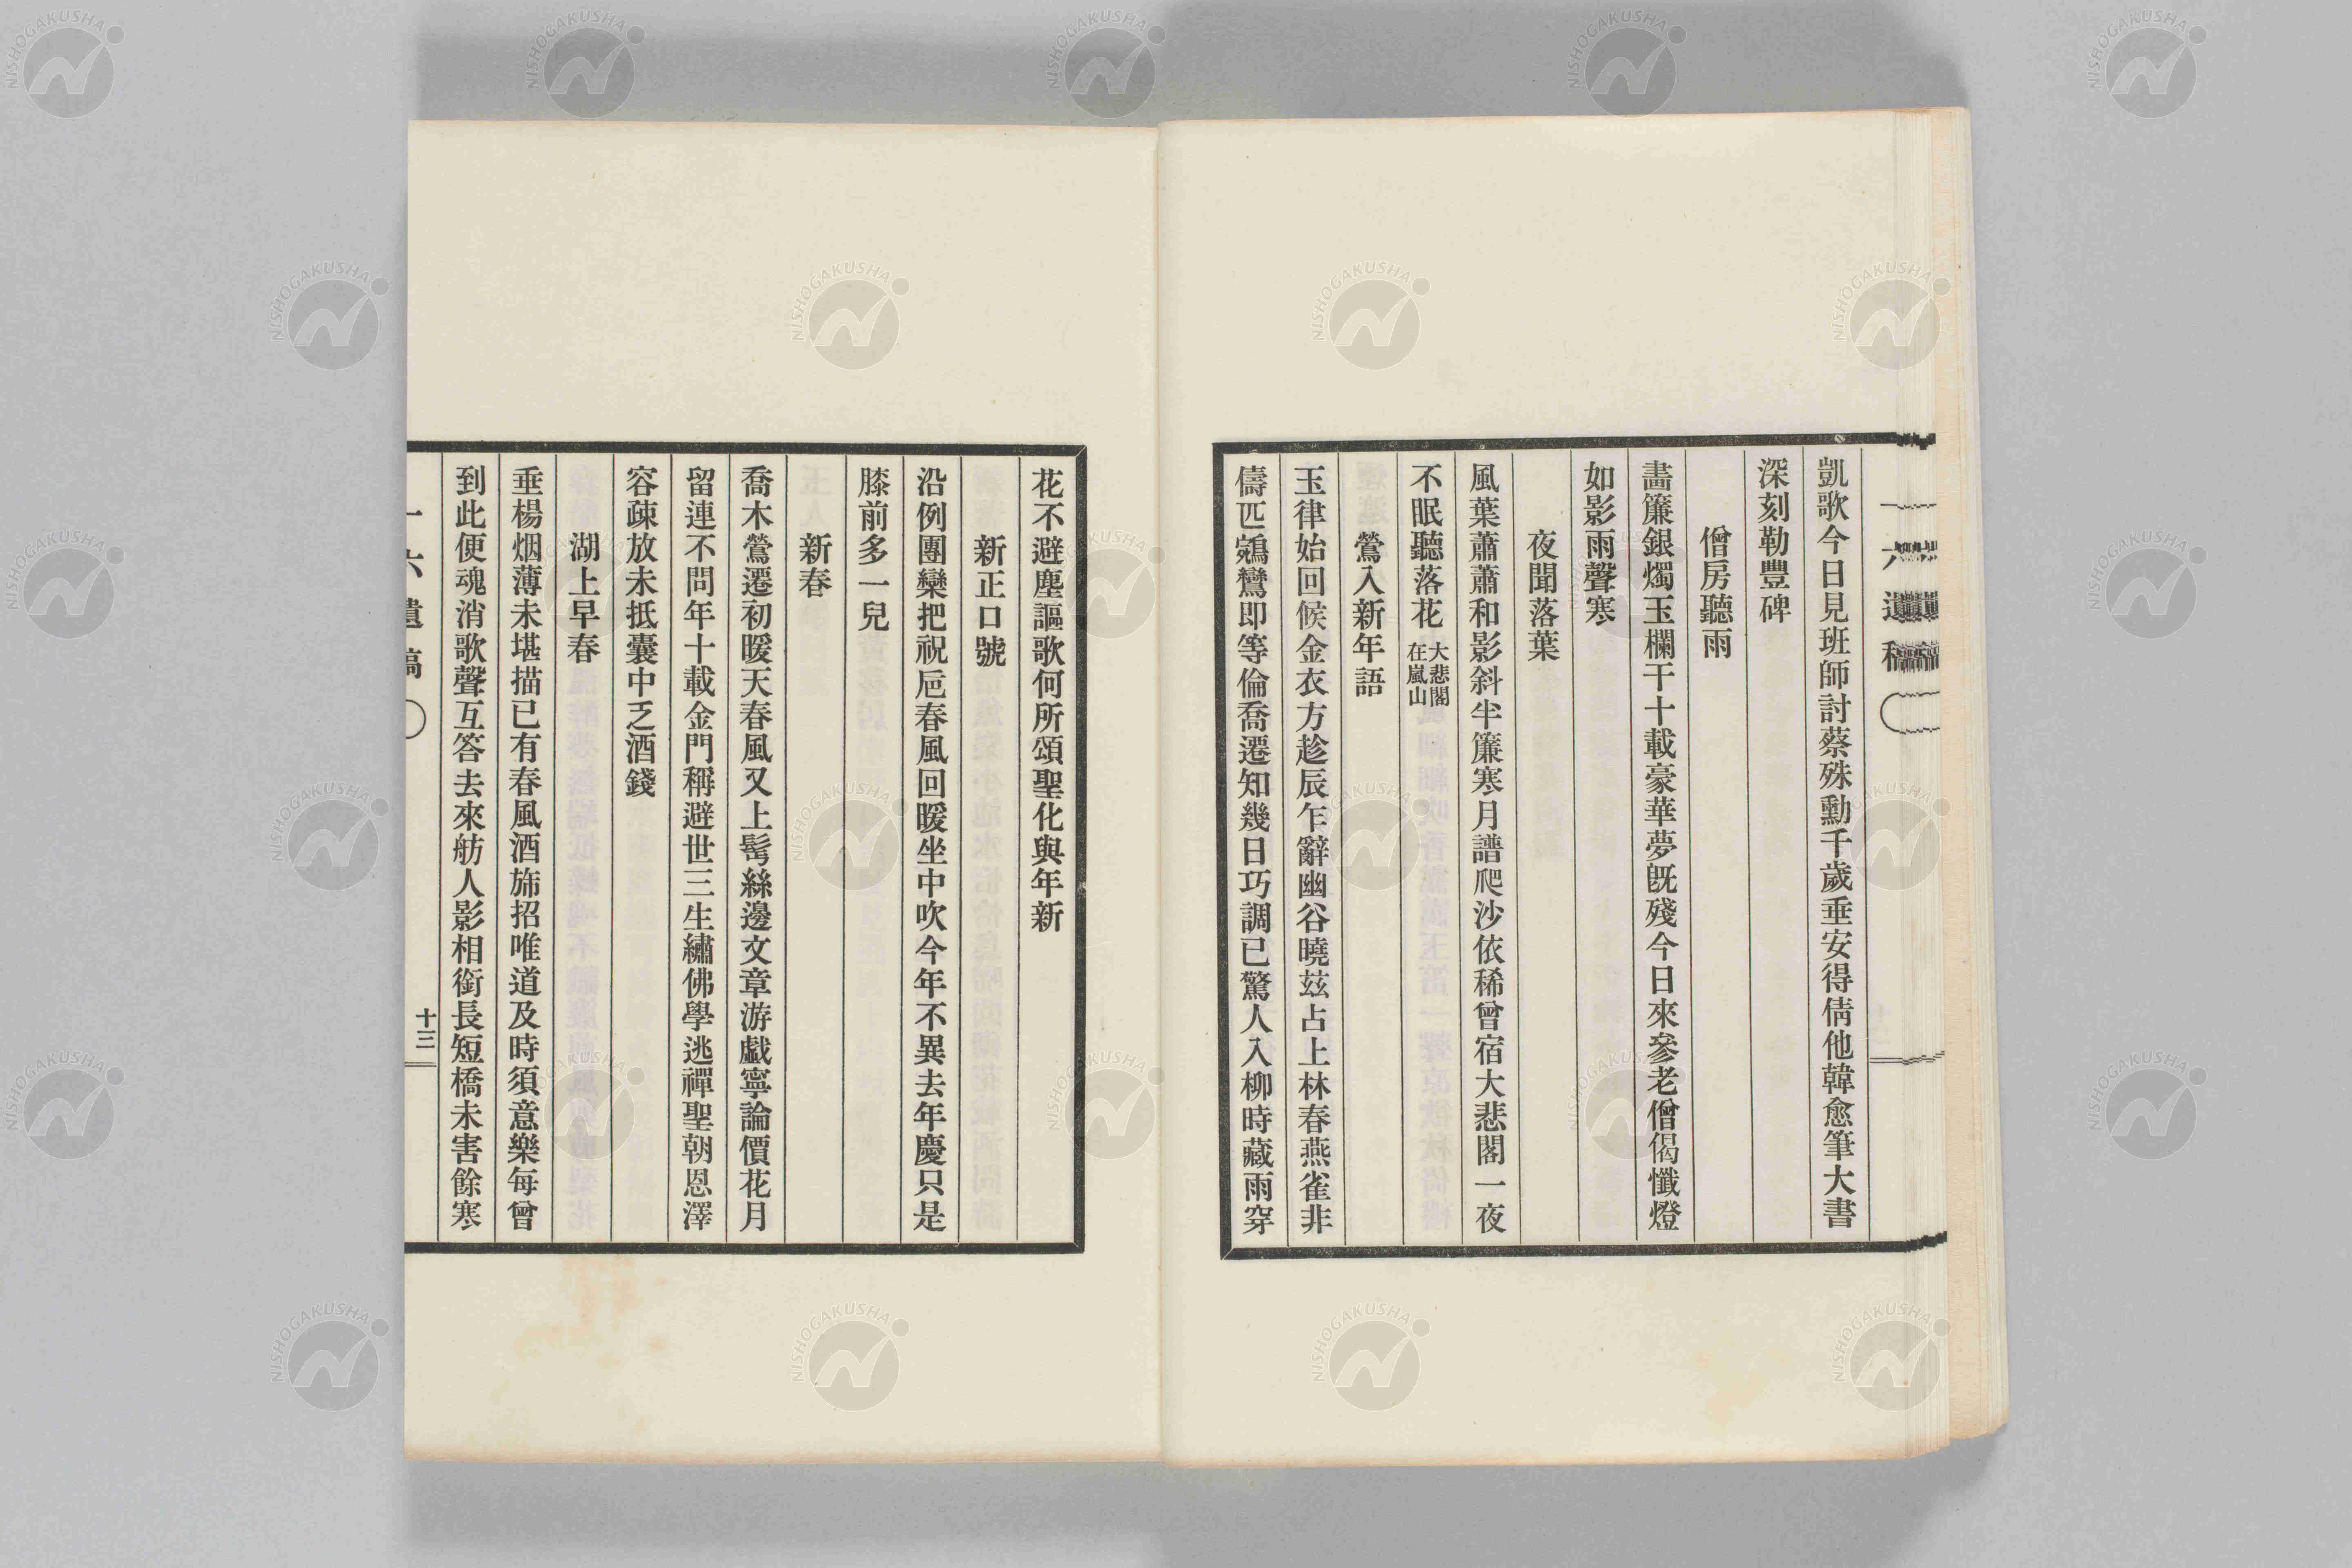 凱歌今日見班師討蔡殊勳千歲垂安得倩他韓愈筆大書
深刻勒豐碑
僧房聽雨
畵簾銀燭玉欄干十載豪華夢旣殘今日來參老僧偈懺燈
如影雨聲寒
夜聞落葉
風葉蕭蕭和影斜半簾寒月譜爬沙依稀曾宿大悲閣一夜
不眠聽落花 大悲閣在嵐山
鶯入新年語
玉律始回候金衣方趁辰乍辭幽谷曉玆占上林春燕雀非
儔匹鵷鸞即等倫喬遷知幾日巧調已驚人入柳時藏雨穿
一六遺稿
花不避塵謳歌何所頌聖化與年新
新正口號
沿例團欒把祝巵春風回暖坐中吹今年不異去年慶只是
膝前多一兒
新春
喬木鶯遷初暖天春風又上髩絲邊文章游戲寧論價花月
留連不問年十載金門稱避世三生繡佛學逃禪聖朝恩澤
容疎放未抵囊中乏酒錢
湖上早春
垂楊烟薄未堪描已有春風酒旆招唯道及時須意樂每曾
到此便魂消歌聲互答去來舫人影相銜長短橋未害餘寒
一六遺稿
十三
NISHOGAKUSHA